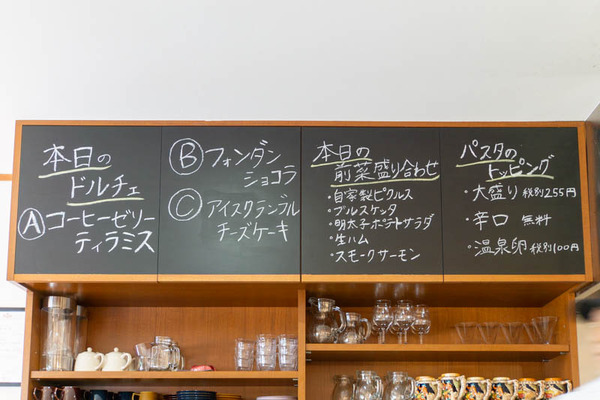 本日の
ドルチェ
Ⓐコーヒーゼリー
ティラミス
Ⓑフォンダン
ショコラ
Ⓒアイスクランブル
チーズケーキ
本日の
前菜盛り合わせ
・自家製ピクルス
・ブルスケッタ
・明太子ポテトサラダ
・生ハム
・スモークサーモン
パスタの
トッピング
・大盛り 税別255円
・辛口 無料
・温泉卵 税別100円